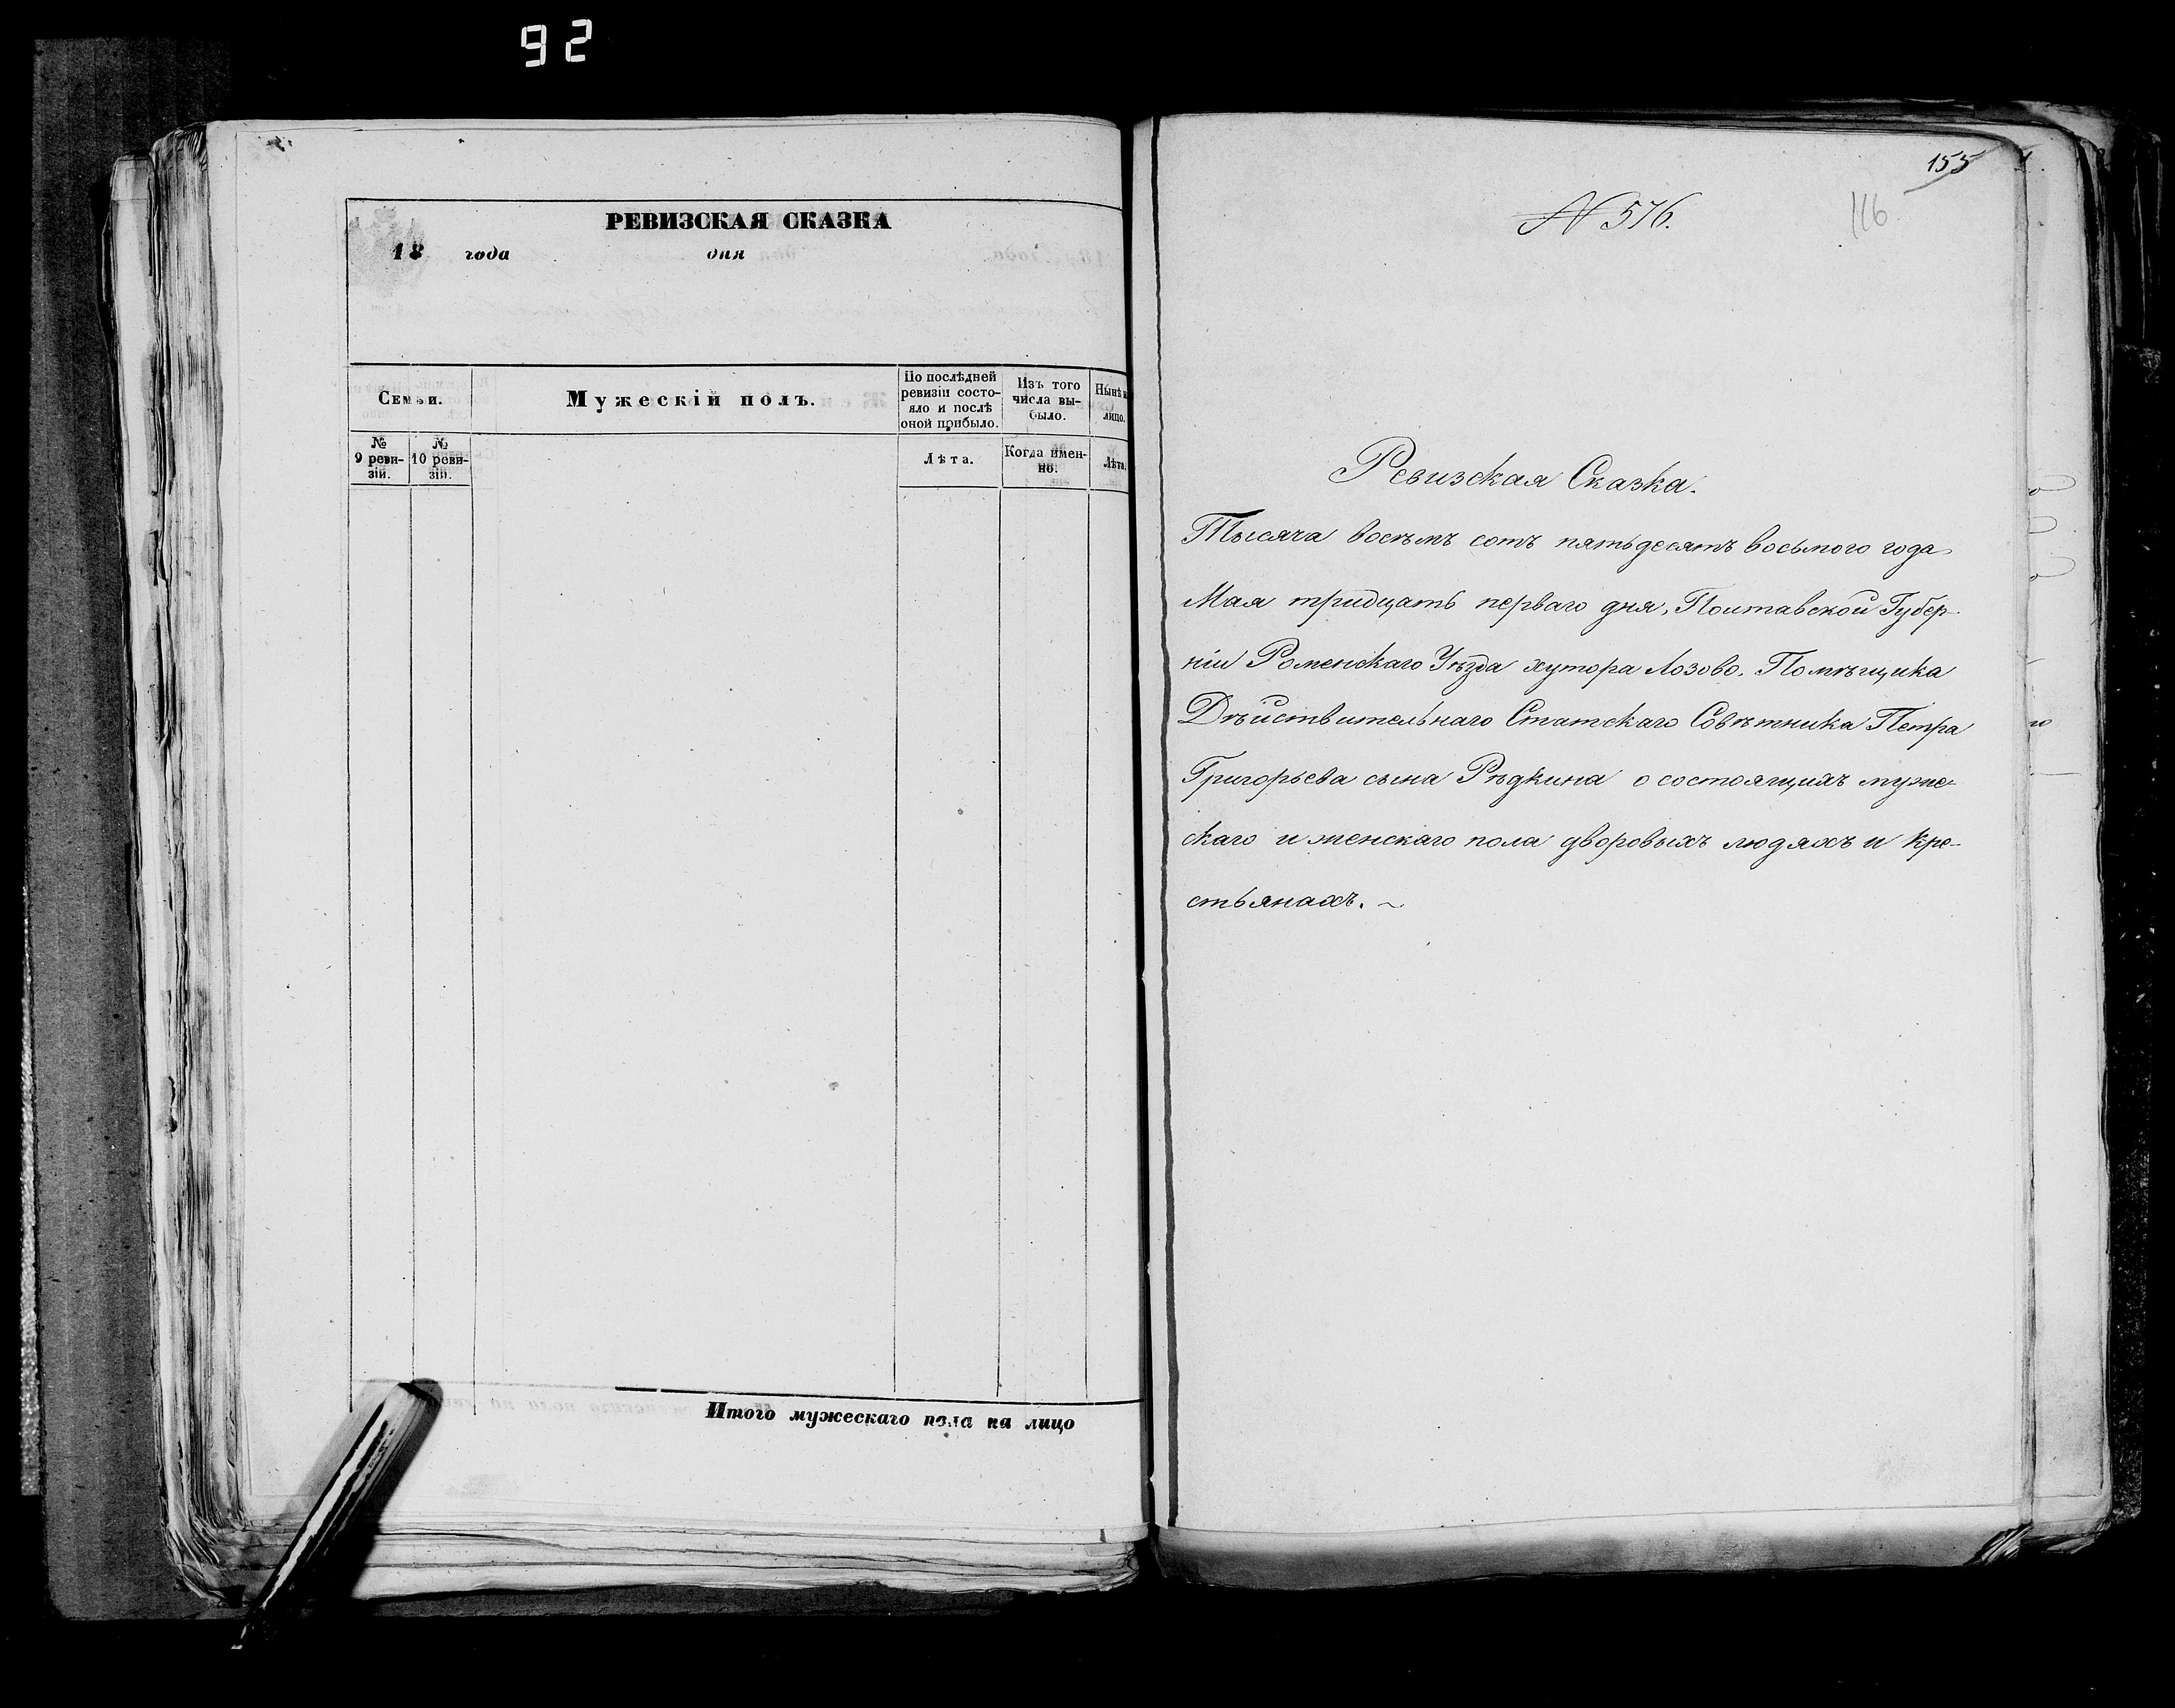 92
РЕВИЗСКАЯ СКАЗКА
18 года дня
Семьи.
Мужескій полъ.
По послѣдней
ревизіи состо-
яло и послѣ
оной прибыло.
Изъ того
числа вы-
было.
Нынѣ
лицо.
№
9 реви-
зіи.
№
10 реви-
зіи.
Лѣта.
Когда имен-
но.
Лѣта.
Итого мужескаго пола на лицо
155
116
№ 576.
Ревизская Сказка.
Тысяча восѣмъ сотъ пятьдесятъ восьмого года
Мая тридцать перваго дня, Полтавской Губер-
ніи Роменскаго Уѣзда хутора Лозово. Помѣщика
Дѣйствительнаго Статскаго Совѣтника Петра
Григорьева сына Рѣдкина о состоящихъ муже-
скаго и женскаго пола дворовыхъ людяхъ и кре-
стьянахъ.